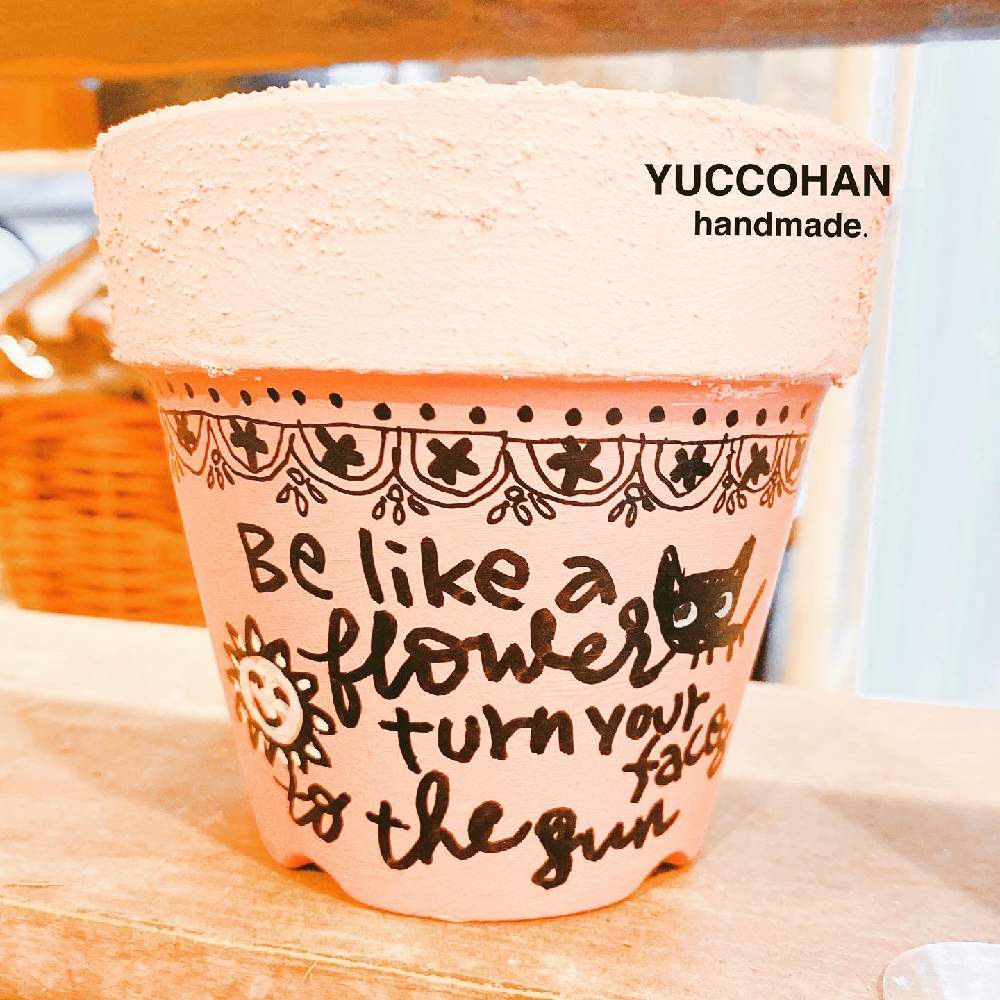 YUCCOHAN
handmade.
Be like a
flower
turn your
faces
to the gun